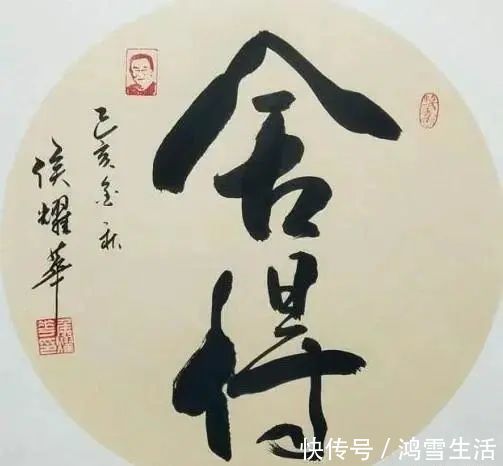 舍得
己亥金秋
侯耀华
快传号 / 鸿雪生活